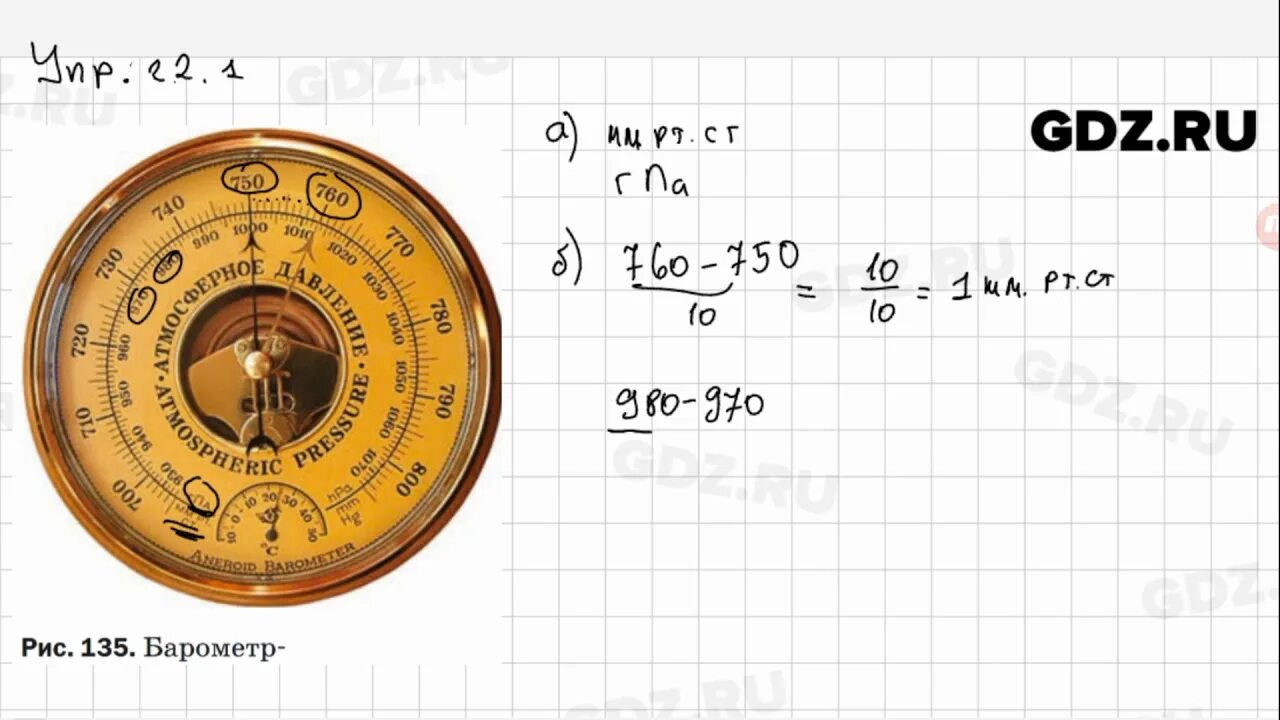 Упр. 22.1
GDZ.RU
а) мм рт. ст
гПа
б) 760 - 750 = 10/10 = 1 мм. рт. ст
10
980-970
700 710 720 730 740 750 760 770 780 790 800
930 940 950 960 970 980 990 1000 1010 1020 1030 1040 1050 1060 1070
• АТМОСФЕРНОЕ ДАВЛЕНИЕ •
ATMOSPHERIC PRESSURE
гПА
ММ РТ.
СТ
hPa
mm
Hg
10 0 10 20 30 40 50
°C
ANEROID BAROMETER
Рис. 135. Барометр-
GDZ.RU
GDZ.RU
GDZ.RU
GDZ.RU
GDZ.RU
GDZ.RU